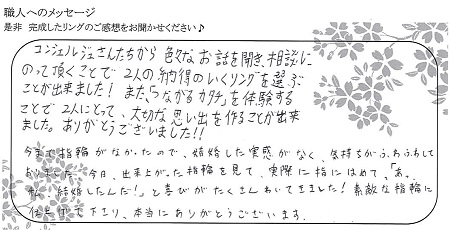 職人へのメッセージ
是非 完成したリングのご感想をお聞かせください♪
コンシェルジュさんたちから色々なお話を聞き、相談に
のって頂くことで2人の納得のいくリングを選ぶ
ことが出来ました! また、つながるカタチを体験する
ことで2人にとって、大切な思い出を作ることが出来
ました。ありがとうございました!!
今まで指輪がなかったので、結婚した実感がなく、気持ちがふわふわして
おりました。今日、出来上がった指輪を見て、実際に指にはめて、「あ、
私、結婚したんだ!」と喜びがたくさんわいてきました!素敵な指輪に
仕上げて下さり、本当にありがとうございます。